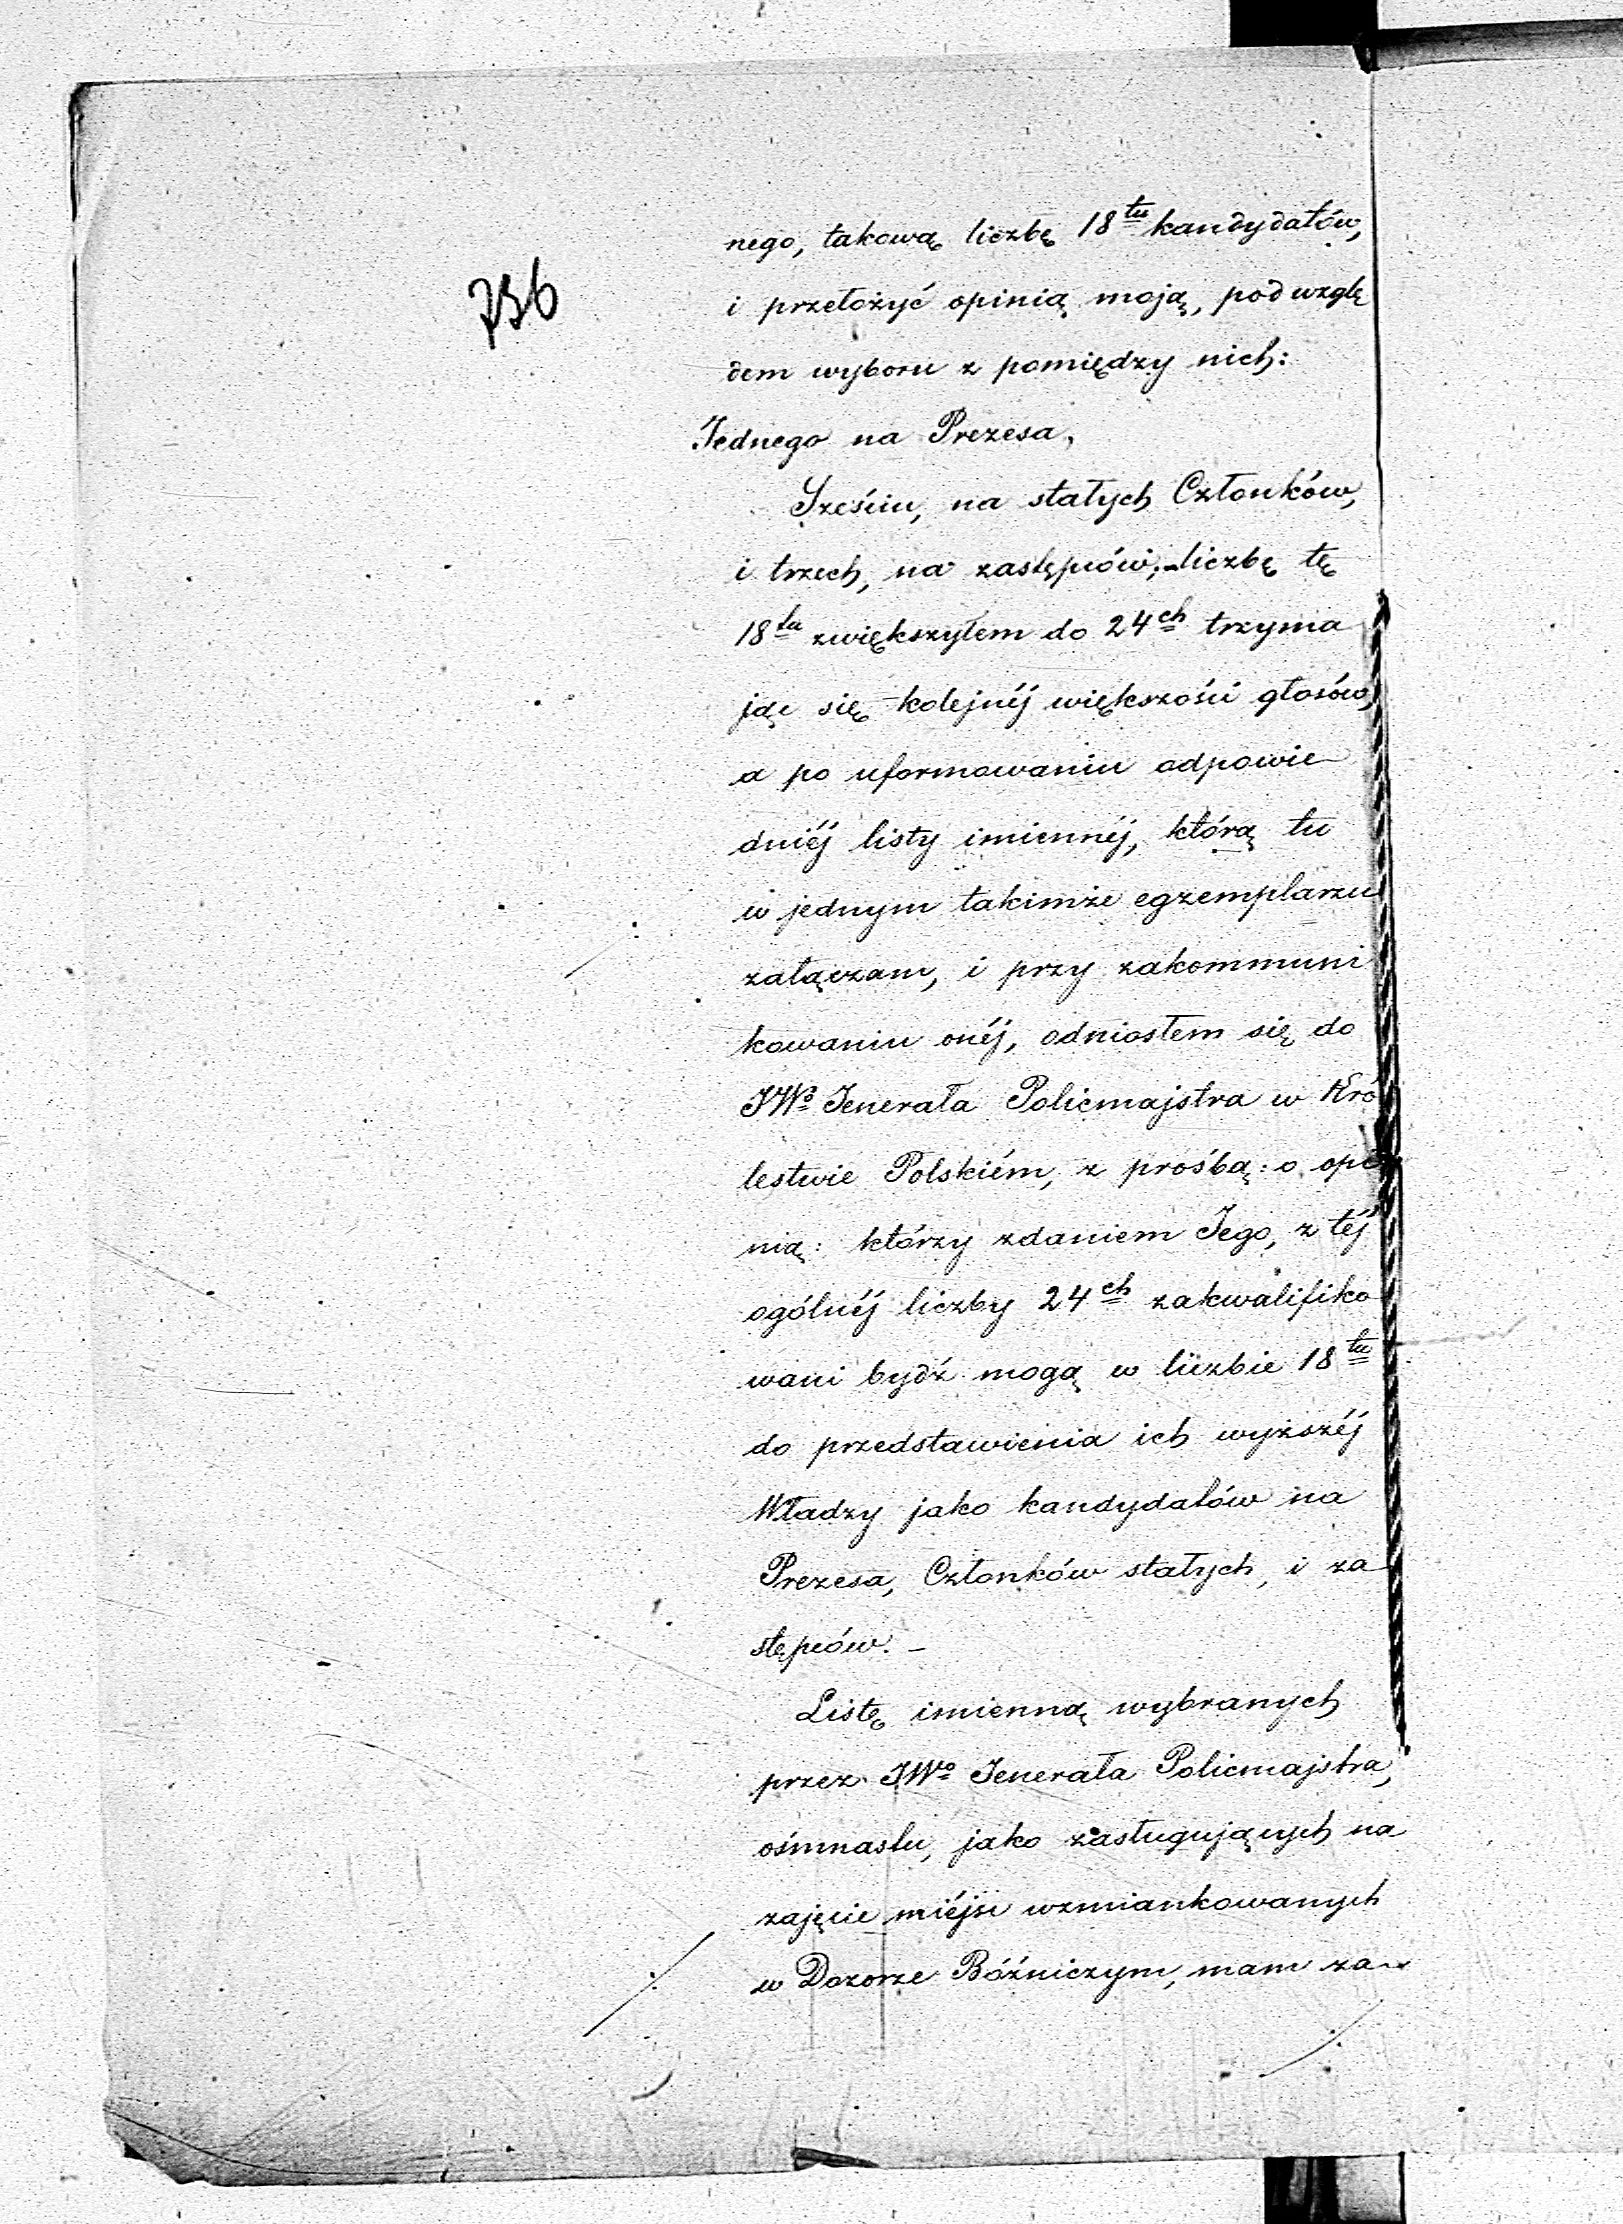 736
nego, takową liczbę 18tu kandydatów,
i przełożyć opinią moją, pod wzglę
dem wyboru z pomiędzy nich:
Jednego na Prezesa,
Sześciu, na stałych Członków,
i trzech, na zastępców; liczbę tę
18tu zwiększyłem do 24ch trzyma
jąc się kolejnéj większości głosów,
a po uformowaniu odpowie
dniéj listy imiennéj, którą tu
w jednym takimże egzemplarzu
załączam, i przy zakommuni
kowaniu onéj, odniosłem się do
JWo Jenerała Policmajstra w Kró
lestwie Polskiém, z prośbą: o opi
nią: którzy zdaniem Jego, z téj
ogólnéj liczby 24ch zakwalifiko
wani bydź mogą w liczbie 18tu
do przedstawienia ich wyższéj
Władzy jako kandydatów na
Prezesa, Członków stałych, i za
stępców. –
Listę imienną wybranych
przez JWo Jenerała Policmajstra,
ośmnastu, jako zasługujących na
zajęcie miéjsc wzmiankowanych
w Dozorze Bóźniczym, mam za